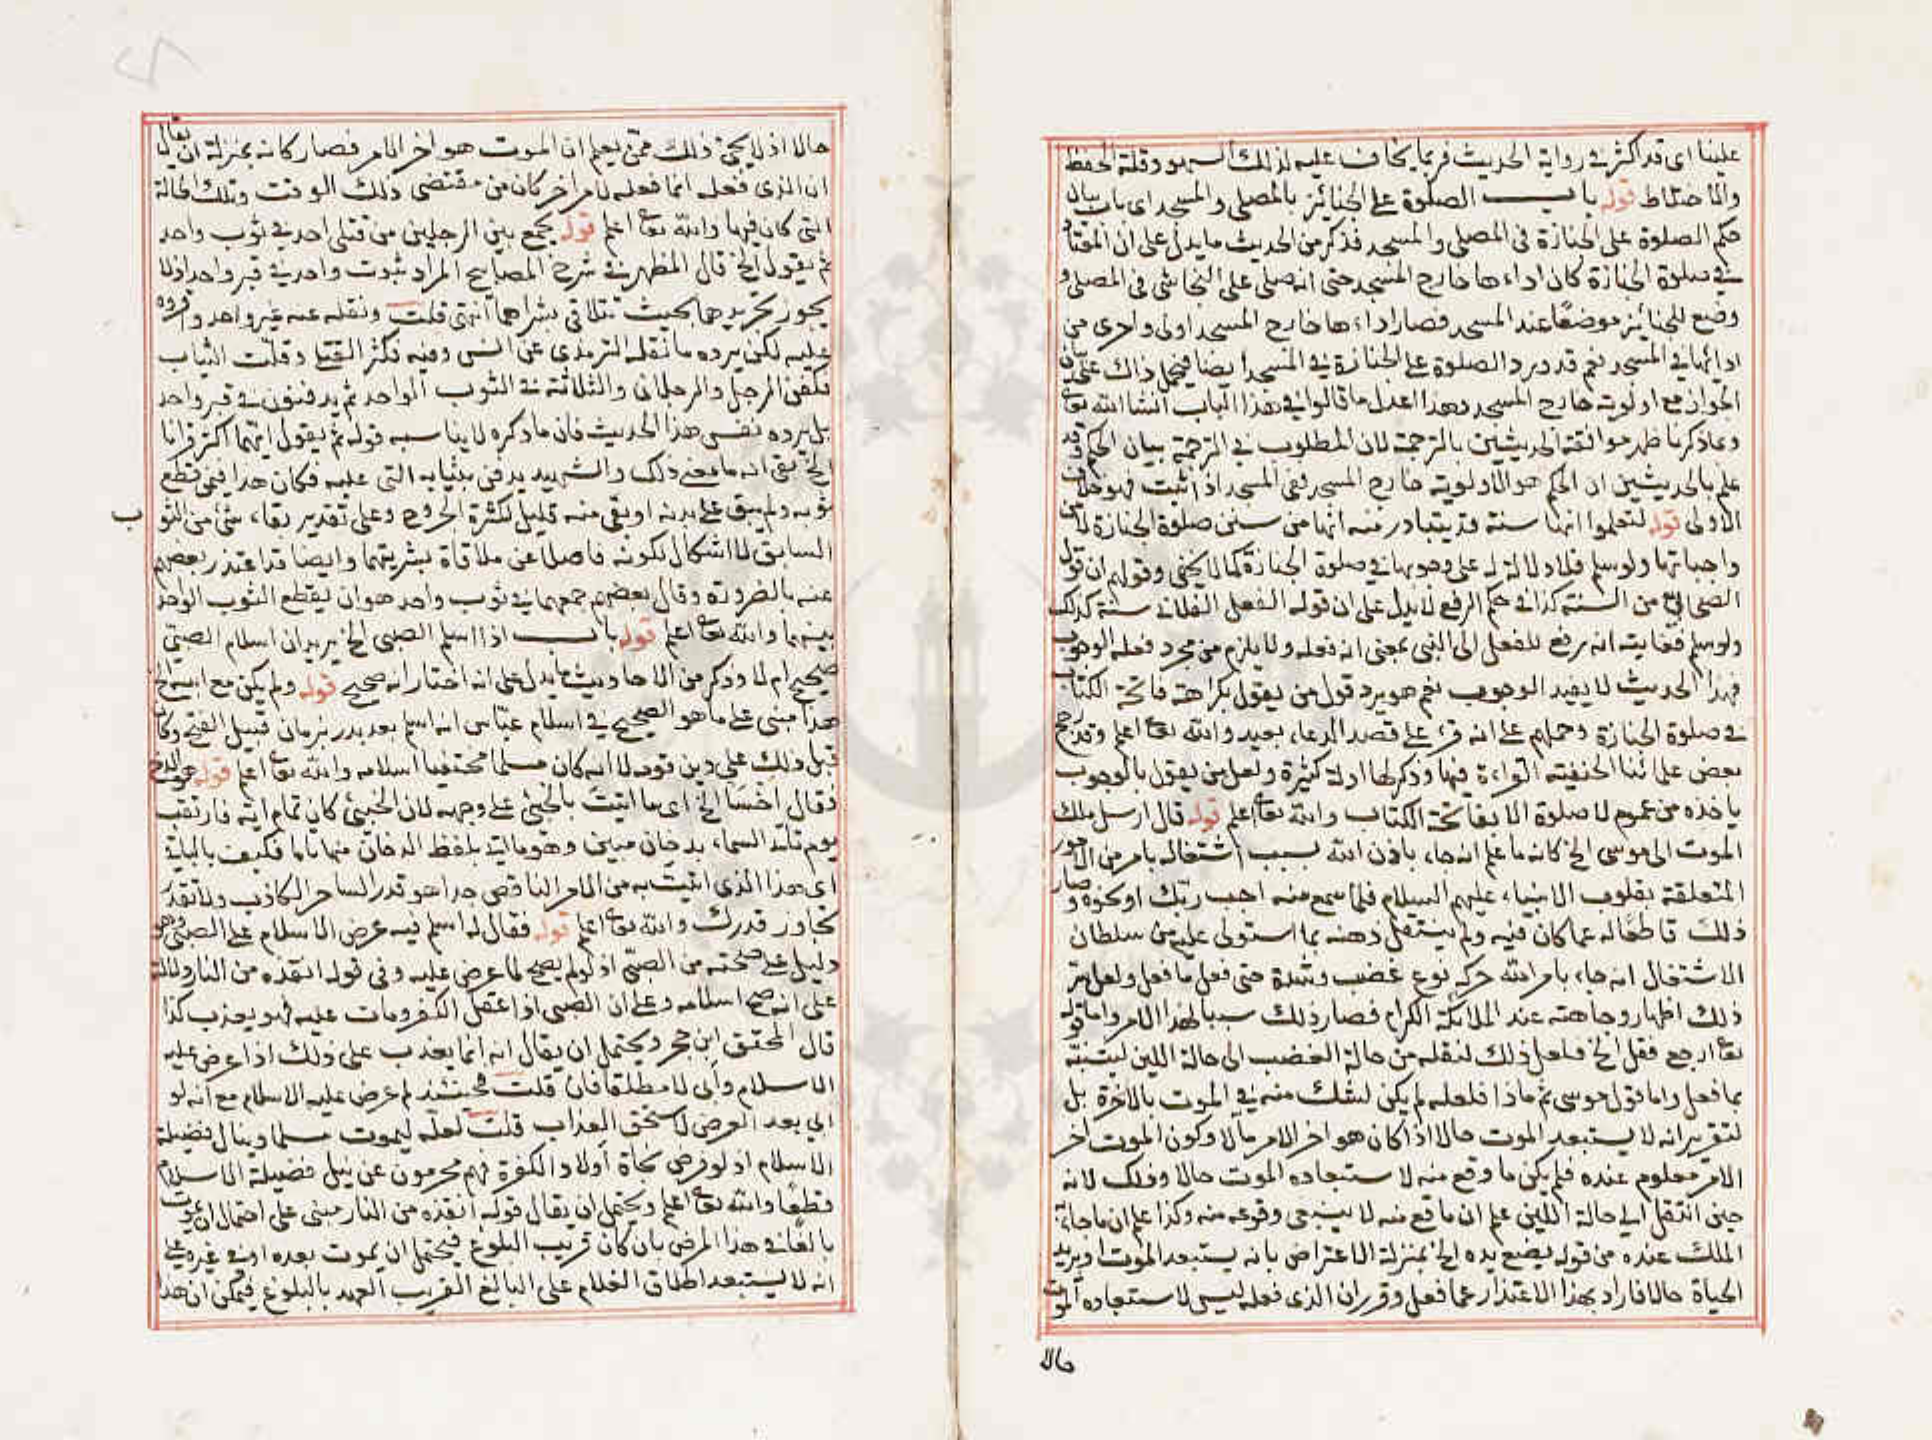 علينا اى قد اكثر في رواية الحديث فربما يخاف عليه لذلك السهو وقلة الحفظ
والاحتياط قوله باب الصلوة على الجنائز بالمصلى والمسجد اى باب بيان
حكم الصلوة على الجنازة فى المصلى والمسجد فذكر من الحديث ما يدل على ان المعتاد
في صلوة الجنازة كان اداءها خارج المسجد حتى انه صلى على النجاشى فى المصلى و
وضع للجنائز موضعا عند المسجد فصار اداءها خارج المسجد اولى واحرى من
ادائها في المسجد نعم قد ورد الصلوة على الجنازة في المسجد ايضا فيحمل ذاك على بيان
الجواز مع اولوية خارج المسجد وهذا اعدل ما قالوا في هذا الباب انشا الله تعا
وبما ذكر ما ظهر موافقة الحديثين بالترجمة لان المطلوب في الترجمة بيان الحكم وقد
علم بالحديثين ان الحكم هو الاولوية خارج المسجد ففي المسجد اذا ثبت فهو خلاف
الاولى قوله لتعلموا انها سنة قد يتبادر منه انها من سنن صلوة الجنازة لا من
واجباتها ولو سلم فلا دلالة له على وجوبها في صلوة الجنازة كما لا يخفى وقولهم ان قول
الصحابي من السنة كذا في حكم الرفع لا يدل على ان قوله الفعل الفلانى سنة كذلك
ولو سلم فغايته انه رفع للفعل الى النبى بمعنى انه فعله ولا يلزم من مجرد فعله الوجوب
فهذا الحديث لا يفيد الوجوب نعم هو يرد قول من يقول بكراهة فاتحة الكتاب
في صلوة الجنازة وحملهم على انه قرئ على قصد الدعاء بعيد والله تعا اعلم وقد رجح
بعض علمائنا الحنفية القراءة فيها وذكر لها ادلة كثيرة ولعل من يقول بالوجوب
ياخذه من عموم لا صلوة الا بفاتحة الكتاب والله تعا اعلم قوله قال ارسل ملك
الموت الى موسى الخ كانه ما علم انه جاء باذن الله بسبب اشتغاله بامر من الامور
المتعلقة بقلوب الانبياء عليهم السلام فلما سمع منه اجب ربك او نحوه وصار
ذلك قاطعا له عما كان فيه ولم ينتقل ذهنه بما استولى عليه من سلطان
الاشتغال انه جاء بامر الله حركه نوع غضب وشدة حتى فعل ما فعل ولعل سر
ذلك اظهار وجاهته عند الملائكة الكرام فصار ذلك سببا لهذا الامر واما قوله
تعا ارجع فقل الخ فلعل ذلك لنقله من حالة الغضب الى حالة اللين ليتنبه
بما فعل واما قول موسى ثم ماذا فلعله لم يكن لشك منه في الموت بالاخرة بل
لتقرير انه لا يستبعد الموت حالا اذا كان هو اخر الامر مآلا وكون الموت اخر
الامر معلوم عنده فلم يكن ما وقع منه لاستبعاده الموت حالا وذلك لانه
حين انتقل الى حالة اللين علم ان ما وقع منه لا ينبغى وقوعه منه وكذا علم ان ما جاء به
الملك عنده من قوله يضع يده الخ بمنزلة الاعتراض بانه يستبعد الموت او يريد
الحياة حالا فاراد بهذا الاعتذار عما فعل وقرر ان الذى فعله ليس لاستبعاده الموت
حالا
حالا اذ لا يجئ ذلك ممن يعلم ان الموت هو اخر الامر فصار كانه بمنزلة ان يقال
ان الذى فعله انما فعله لامر اخر كان من مقتضى ذلك الوقت وتلك الحالة
التى كان فيها والله تعا اعلم قوله يجمع بين الرجلين من قتلى احد في ثوب واحد
ثم يقول الخ قال المظهر في شرح المصابيح المراد بثوب واحد في قبر واحد اذ لا
يجوز تجريدهما بحيث تتلاقى بشراهما انتهى قلت ونقله عنه غير واحد واقروه
عليه لكن يرده ما نقله الترمذى عن انس وفيه فكثر القتلى وقلت الثياب
فكفن الرجل والرجلان والثلاثة في الثوب الواحد ثم يدفنون في قبر واحد
بل يرده نفس هذا الحديث فان ما ذكره لا يناسبه قوله ثم يقول ايهما اكثر قرانا
الخ بقى انه ما معنى ذلك والشهيد يدفن بثيابه التى عليه فكان هذا فيمن قطع
ثوبه ولم يبق على بدنه او بقى منه قليل لكثرة الجروح وعلى تقدير بقاء شئ من الثوب
السابق لا اشكال لكونه فاصلا عن ملاقاة بشرتهما وايضا قد اعتذر بعضهم
عنه بالضرورة وقال بعضهم جمعهما في ثوب واحد هو ان يقطع الثوب الواحد
بينهما والله تعا اعلم قوله باب اذا اسلم الصبى الخ يريد ان اسلام الصبى
صحيح ام لا وذكر من الاحاديث ما يدل على انه اختار انه صحيح قوله ولم يكن مع ابيه الخ
هذا مبنى على ما هو الصحيح في اسلام عباس انه اسلم بعد بدر بزمان قبيل الفتح وكان
قبل ذلك على دين قومه لا انه كان مسلما مختفيا اسلامه والله تعا اعلم قوله هو الدخ
فقال اخسا الخ اى ما اتيت بالخبئ على وجهه لان الخبئ كان تمام اية فارتقب
يوم تاتى السماء بدخان مبين وهو ما اتى بلفظ الدخان منها تاما فكيف بالباقى
اى هذا الذى اتيت به من الامر الناقص جدا هو قدر الساحر الكاذب ولا تقدر
تجاوز قدرك والله تعا اعلم قوله فقال له اسلم فيه عرض الاسلام على الصبى وهو
دليل على صحته من الصبى اذ لو لم يصح لما عرض عليه وفى قوله انقذه من النار دلالة
على انه صح اسلامه وعلى ان الصبى اذا عقل الكفر ومات عليه فهو يعذب كذا
قال المحقق ابن حجر ويحتمل ان يقال انه انما يعذب على ذلك اذا عرض عليه
الاسلام وابى لا مطلقا فان قلت فحينئذ لم عرض عليه الاسلام مع انه لو
ابى بعد العرض لاستحق العذاب قلت لعله ليموت مسلما وينال فضيلة
الاسلام اذ لو فرض نجاة اولاد الكفرة فهم محرمون عن نيل فضيلة الاسلام
قطعا والله تعا اعلم ويحتمل ان يقال قوله انقذه من النار مبنى على احتمال ان يموت
بالغا في هذا المرض بان كان قريب البلوغ فيحتمل ان يموت بعده او في غيره على
انه لا يستبعد اطلاق الغلام على البالغ القريب العهد بالبلوغ فيمكن ان هذا